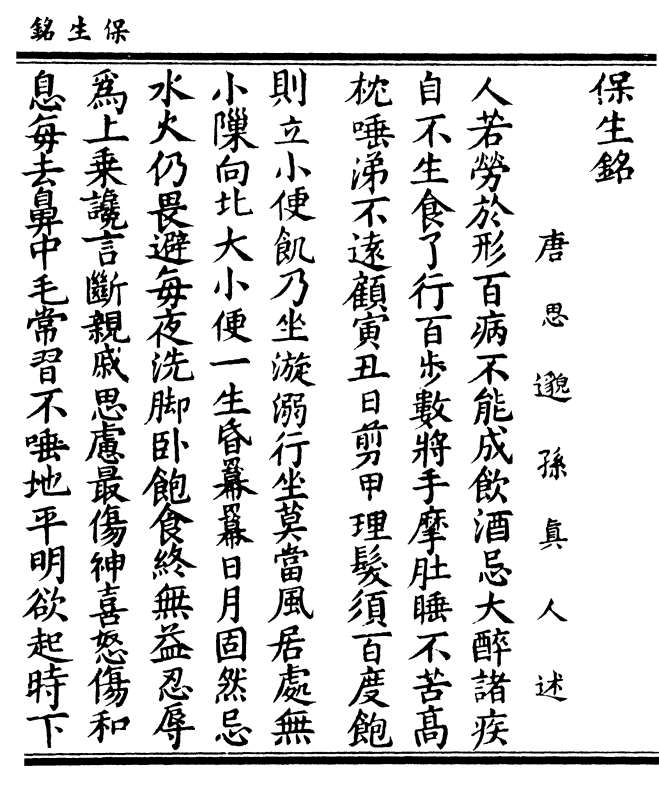 保生銘
保生銘
唐思邈孫真人述
人若勞於形百病不能成飲酒忌大醉諸疾
自不生食了行百步數將手摩肚睡不苦高
枕唾涕不遠顧寅丑日剪甲理髮須百度飽
則立小便飢乃坐漩溺行坐莫當風居處無
小隟向北大小便一生昏冪冪日月固然忌
水火仍畏避每夜洗脚卧飽食終無益忍辱
為上乗讒言斷親戚思慮最傷神喜怒傷和
息每去鼻中毛常習不唾地平明欲起時下